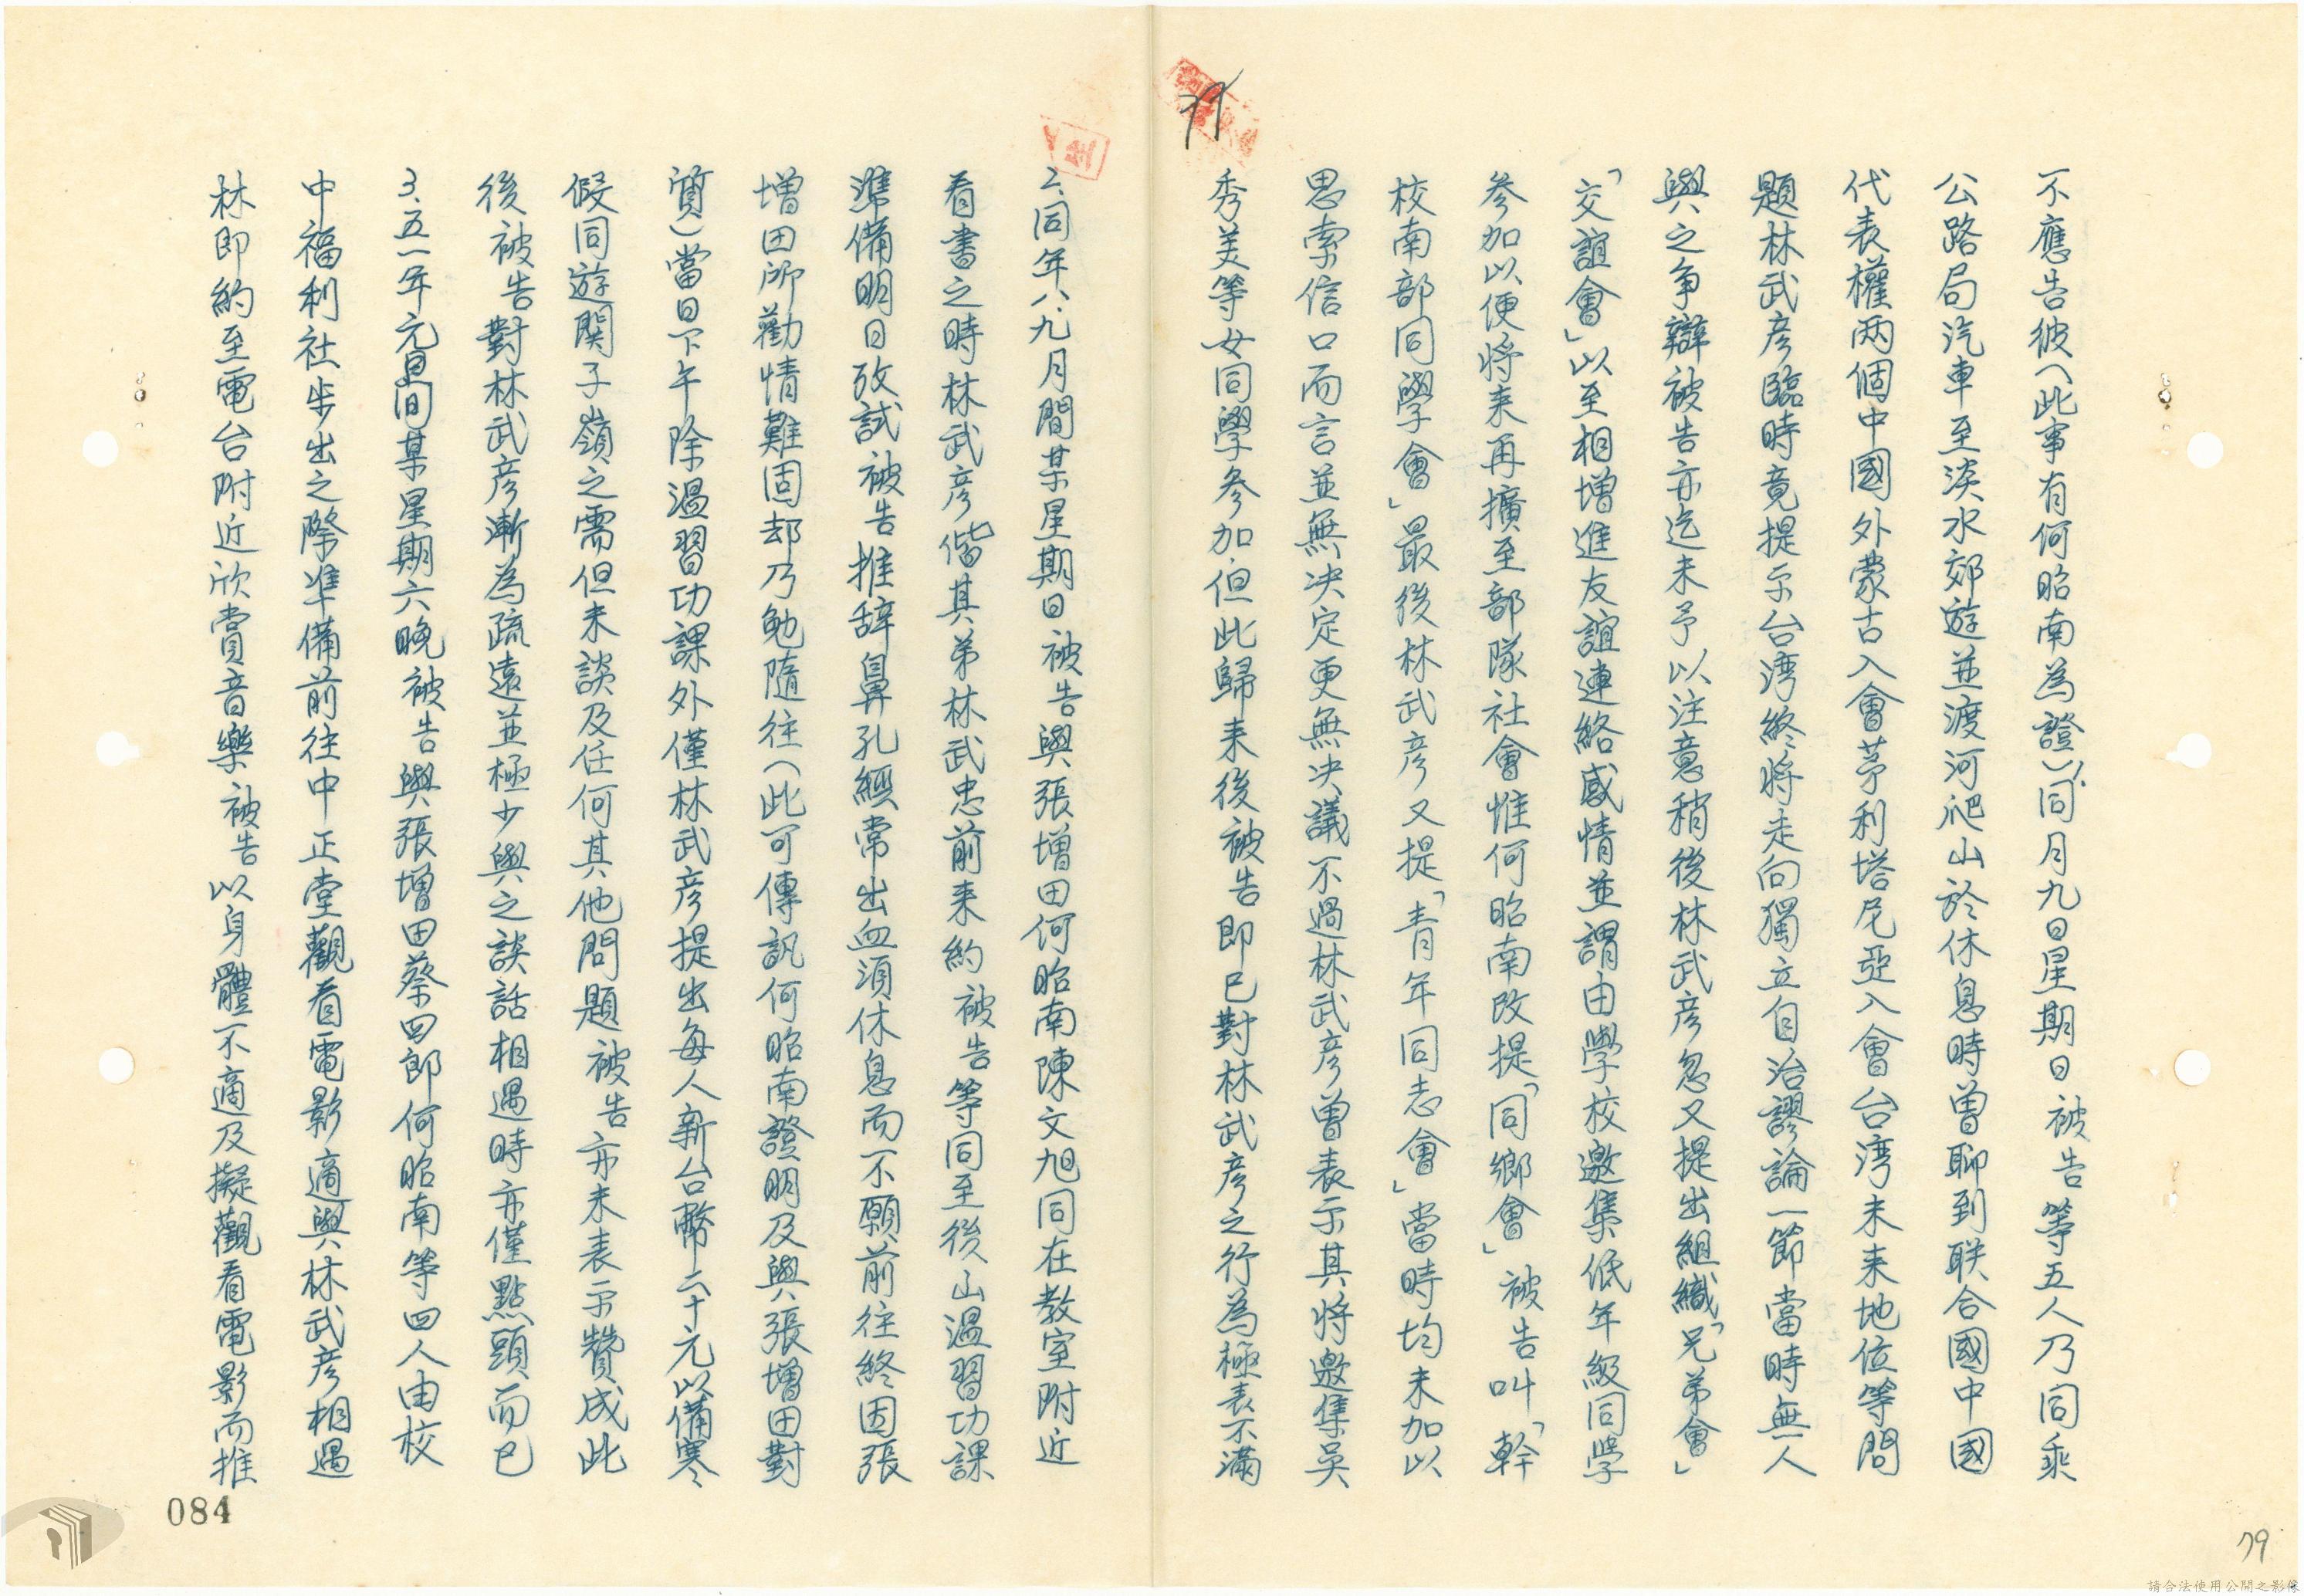 不應告彼（此事有何昭南為證）同月九日星期日被告等五人乃同乘
公路局汽車至淡水郊遊並渡河爬山於休息時曾聊到联合國中國
代表權两個中國外蒙古入會茅利塔尼亞入會台湾未来地位等問
題林武彦臨時竟提示台湾終將走向獨立自治謬論一節當時無人
與之争辯被告亦迄未予以注意稍後林武彦忽又提出組織「兄弟會」
「交誼會」以至相增進友誼連絡感情並謂由學校邀集低年級同学
参加以便将来再擴至部隊社會惟何昭南改提「同鄉會」被告叫「幹
校南部同學會」最後林武彦又提「青年同志會」當時均未加以
思索信口而言並無决定更無决議不過林武彦曾表示其将邀集吴
秀美等女同學参加但此歸来後被告即已對林武彦之行為極表不滿
79
2.同年八、九月間某星期日被告與張增田何昭南陳文旭同在教室附近
看書之時林武彦偕其弟林武忠前来約被告等同至後山溫習功課
準備明日攷試被告推辞鼻孔經常出血須休息而不願前往終因張
增田所勸情難固却乃勉隨往（此可傳訊何昭南證明及與張增田對
質）當日下午除溫習功課外僅林武彦提出每人新台幣二十元以備寒
假同遊関子嶺之需但未談及任何其他問題被告亦未表示贊成此
後被告對林武彦漸為疏遠並極少與之談話相遇時亦僅點頭而已
3.五一年元旦間某星期六晚被告與張增田蔡四郎何昭南等四人由校
中福利社步出之際準備前往中正堂觀看電影適與林武彦相遇
林即約至電台附近欣賞音樂被告以身體不適及擬觀看電影而推
084
79
請合法使用公開之影像